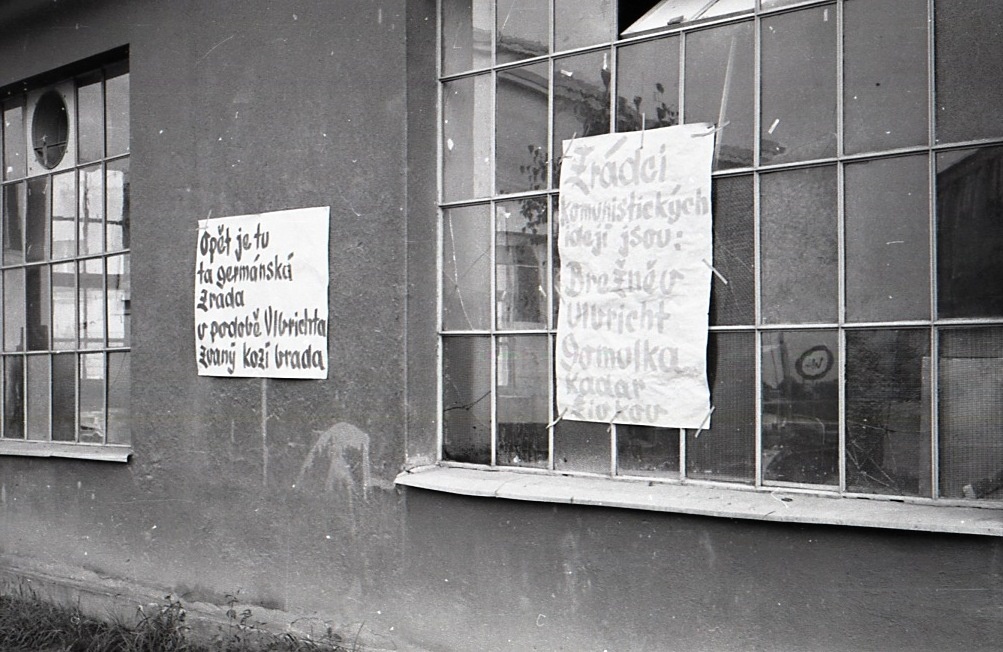 Opět je tu
ta germánská
zrada
v podobě Ulbrichta
zvaný kozí brada
Zrádci
komunistických
idejí jsou:
Brežněv
Ulbricht
Gomulka
Kadar
Živkov